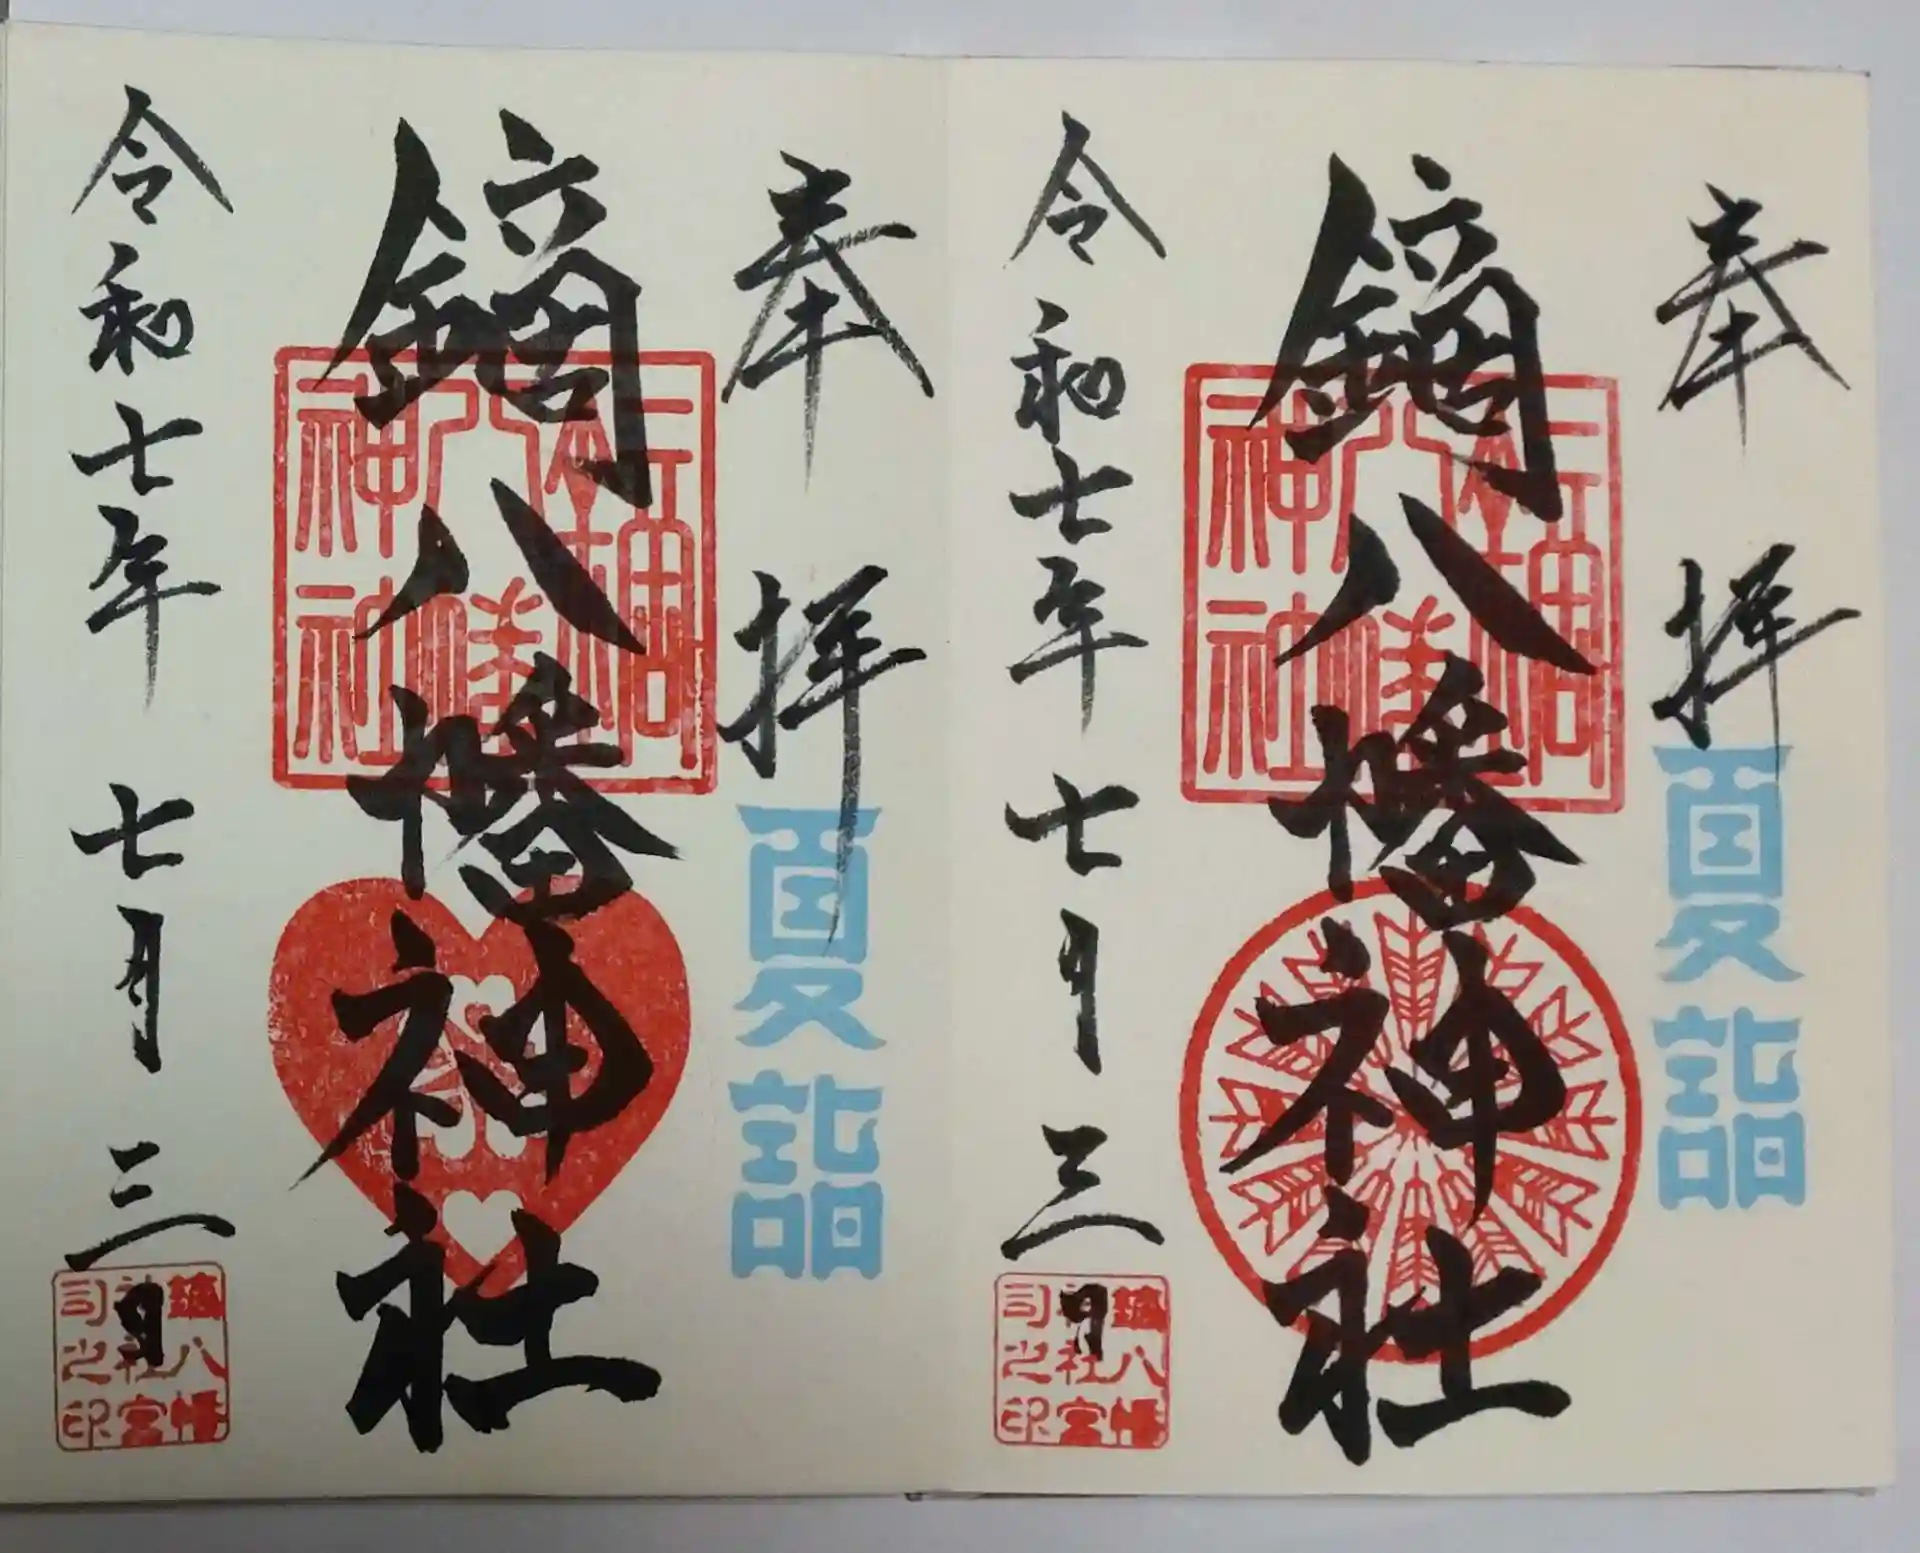 奉拝
夏詣
鏑八幡神社
令和七年 七月 三日
鏑八幡
神社宮
司之印
奉拝
夏詣
鏑八幡神社
令和七年 七月 三日
鏑八幡
神社宮
司之印